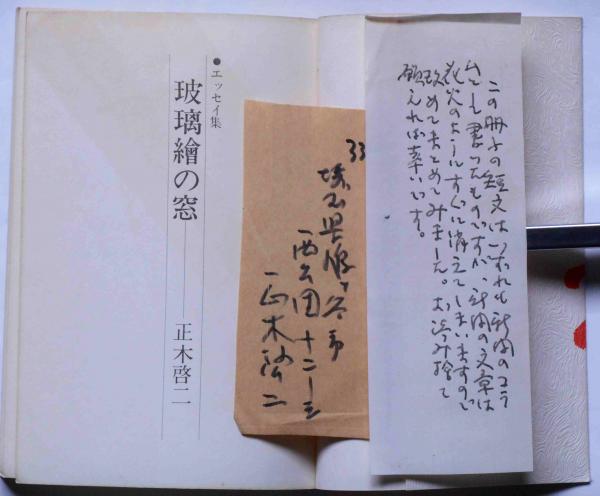 ●エッセイ集
玻璃繪の窓――正木啓二
33
埼玉県
西公団十二ー三
正木啓二
この冊子の短文はいずれも新聞のコラ
ムとして書いたものですが、新聞の文章は
花火のようにすぐに消えてしまいますので
改めてまとめてみました。お読み捨て
願えれば幸いです。